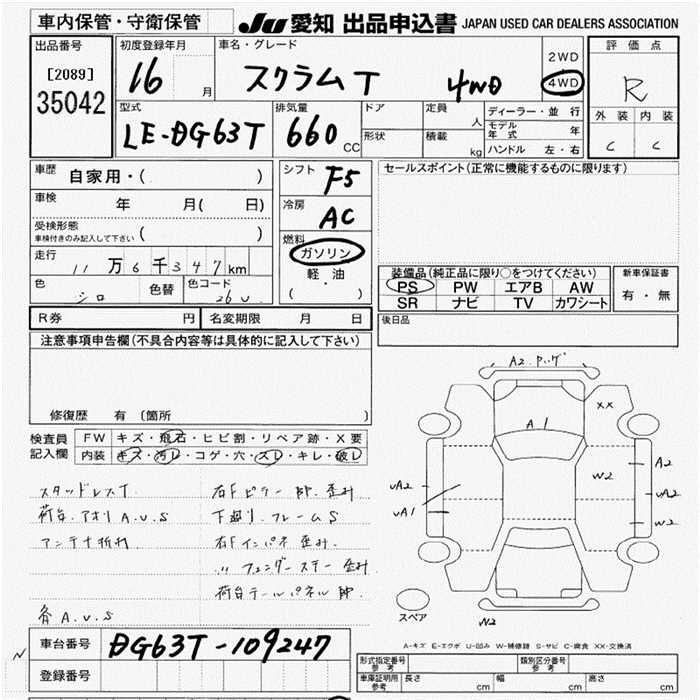 車内保管・守衛保管
JU 愛知 出品申込書 JAPAN USED CAR DEALERS ASSOCIATION
出品番号
[2089]
35042
初度登録年月
16 月
車名・グレード
スクラムT 4WD
2WD
4WD
評価点
R
外装 内装
C C
型式
LE-DG63T
排気量
660 CC
ドア
形状
定員 人
積載 kg
ディーラー・並行
モデル年式 年
ハンドル 左・右
車歴
自家用・( )
車検
年 月( 日)
受検形態
車検付きのみ記入して下さい ( )
走行
11万6千347km
色 シロ 色替 色コード 26U
シフト F5
冷房 AC
燃料
ガソリン
軽油
( ・ )
セールスポイント(正常に機能するものに限ります)
装備品(純正品に限り○をつけてください)
PS PW エアB AW
SR ナビ TV カワシート
新車保証書
有・無
後日品
R券 円 名変期限 月 日
注意事項申告欄(不具合内容等は具体的に記入して下さい)
修復歴 有 (箇所
検査員記入欄
FW キズ・飛石・ヒビ割・リペア跡・X要
内装 キズ・汚レ・コゲ・穴・スレ・キレ・破レ
スタッドレスT
荷台.アオリA.U.S
アンテナ折れ
各A.U.S
右Fピラー 歪み
下廻り.フレームS
右Fインパネ 歪み.
〃 フェンダーステー 歪み
荷台テールパネル
A2
A1
XX
W2
A2
UA2
W2
UA2
UA1
N2
スペア
A-キズ E-エクボ U-凹み W-補修跡 S-サビ C-腐食 XX-交換済
N
車台番号 DG63T-109247
登録番号
形式指定番号 参考
類別区分番号 参考
車庫証明用 参考 長さ cm 幅 cm 高さ cm